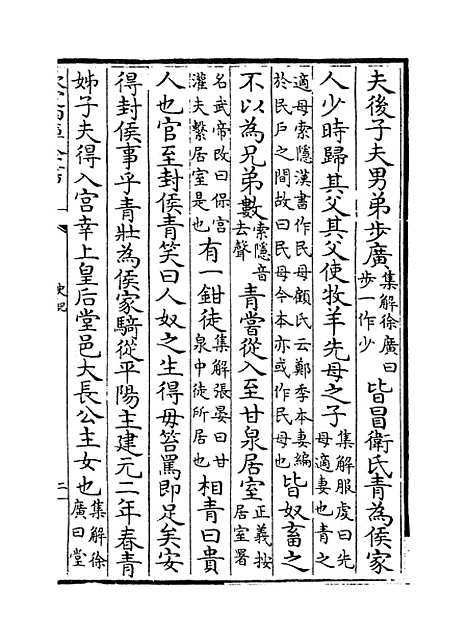 夫後子夫男弟步廣集解徐廣曰步一作少皆冒衛氏青為侯家
人少時歸其父其父使牧羊先母之子集解服虔曰先母適妻也青之
適母索隱漢書作民母顧氏云鄭季本妻編於民戶之間故曰民母今本亦或作民母也皆奴畜之
不以為兄弟數索隱音去聲青嘗從入至甘泉居室正義按居室署
名武帝改曰保宮灌夫繫居室是也有一鉗徒集解張晏曰甘泉中徒所居也相青曰貴
人也官至封侯青笑曰人奴之生得毋笞罵即足矣安
得封侯事乎青壯為侯家騎從平陽主建元二年春青
姊子夫得入宮幸上皇后堂邑大長公主女也集解徐廣曰堂
史記